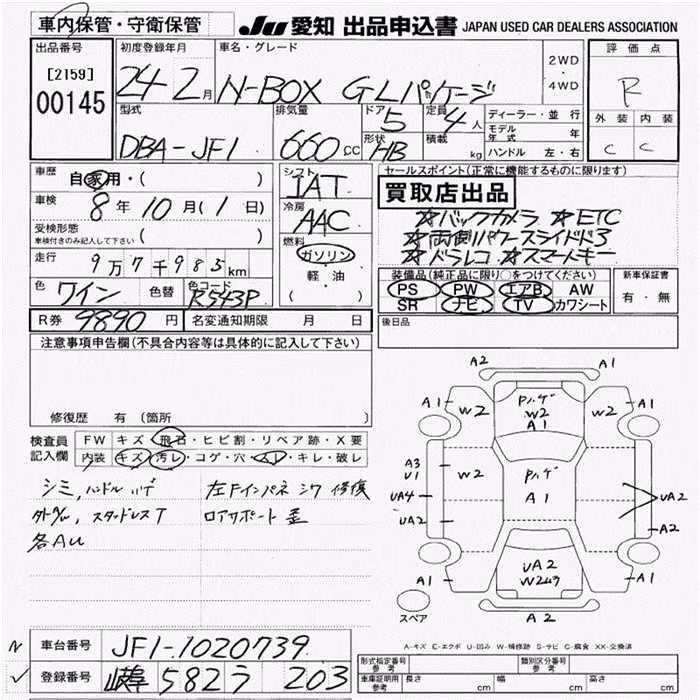 車内保管・守衛保管 JU 愛知 出品申込書 JAPAN USED CAR DEALERS ASSOCIATION
出品番号 初度登録年月 車名・グレード 2WD・4WD 評価点
[2159] 24 2月 N-BOX GLパッケージ R
00145
型式 排気量 ドア 定員 ディーラー・並行 外装 内装
DBA-JF1 660cc 5 4人 モデル年式 年 C C
形状 積載 HB kg ハンドル 左・右
車歴 自家用・( ) シフト セールスポイント(正常に機能するものに限ります)
IAT 買取店出品
車検 8年10月(1日) 冷房 ☆バックカメラ ☆ETC
受検形態 ( ) AAC ☆両側パワースライドドア
車検付きのみ記入して下さい 燃料 ☆ドラレコ ☆スマートキー
走行 9万7千983km ガソリン 装備品(純正品に限り○をつけてください) 新車保証書
軽・油 PS PW エアB AW 有・無
色 ワイン 色替 色コード R543P ( ) SR ナビ TV カワシート
R券 9890円 名変通知期限 月 日 後日品
注意事項申告欄(不具合内容等は具体的に記入して下さい)
修復歴 有 (箇所 )
検査員 FW キズ・飛石・ヒビ割・リペア跡・X要
記入欄 内装 キズ・汚レ・コゲ・穴・スレ・キレ・破レ
シミ,ハンドルハゲ 左Fインパネ シワ 修復
スタッドレスT ロアサポート 歪
各AU
A2 A1
A1 W2 Pハゲ W2 A1 W2 A1
A3 U1 W2 Pハゲ A1
UA4 UA2
UA2 A2
A1 UA2 W2ムラ A1
スペア A2
A-キズ E-エクボ U-凹み W-補修跡 S-サビ C-腐食 XX-交換済
N 車台番号 JF1-1020739
✓ 登録番号 岐阜 582 う 203
形式指定番号 参考 類別区分番号 参考
車庫証明用 参考 長さ cm 幅 cm 高さ cm